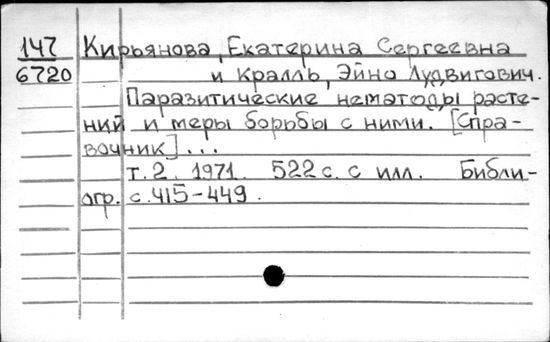 147 Кирьянова, Екатерина Сергеевна
6720 и Кралль, Эйно Лудвигович.
Паразитические нематоды расте-
ний и меры борьбы с ними. [Спра-
вочник]...
т.2. 1971. 522 с. с илл. Библи-
огр. с.415-449.